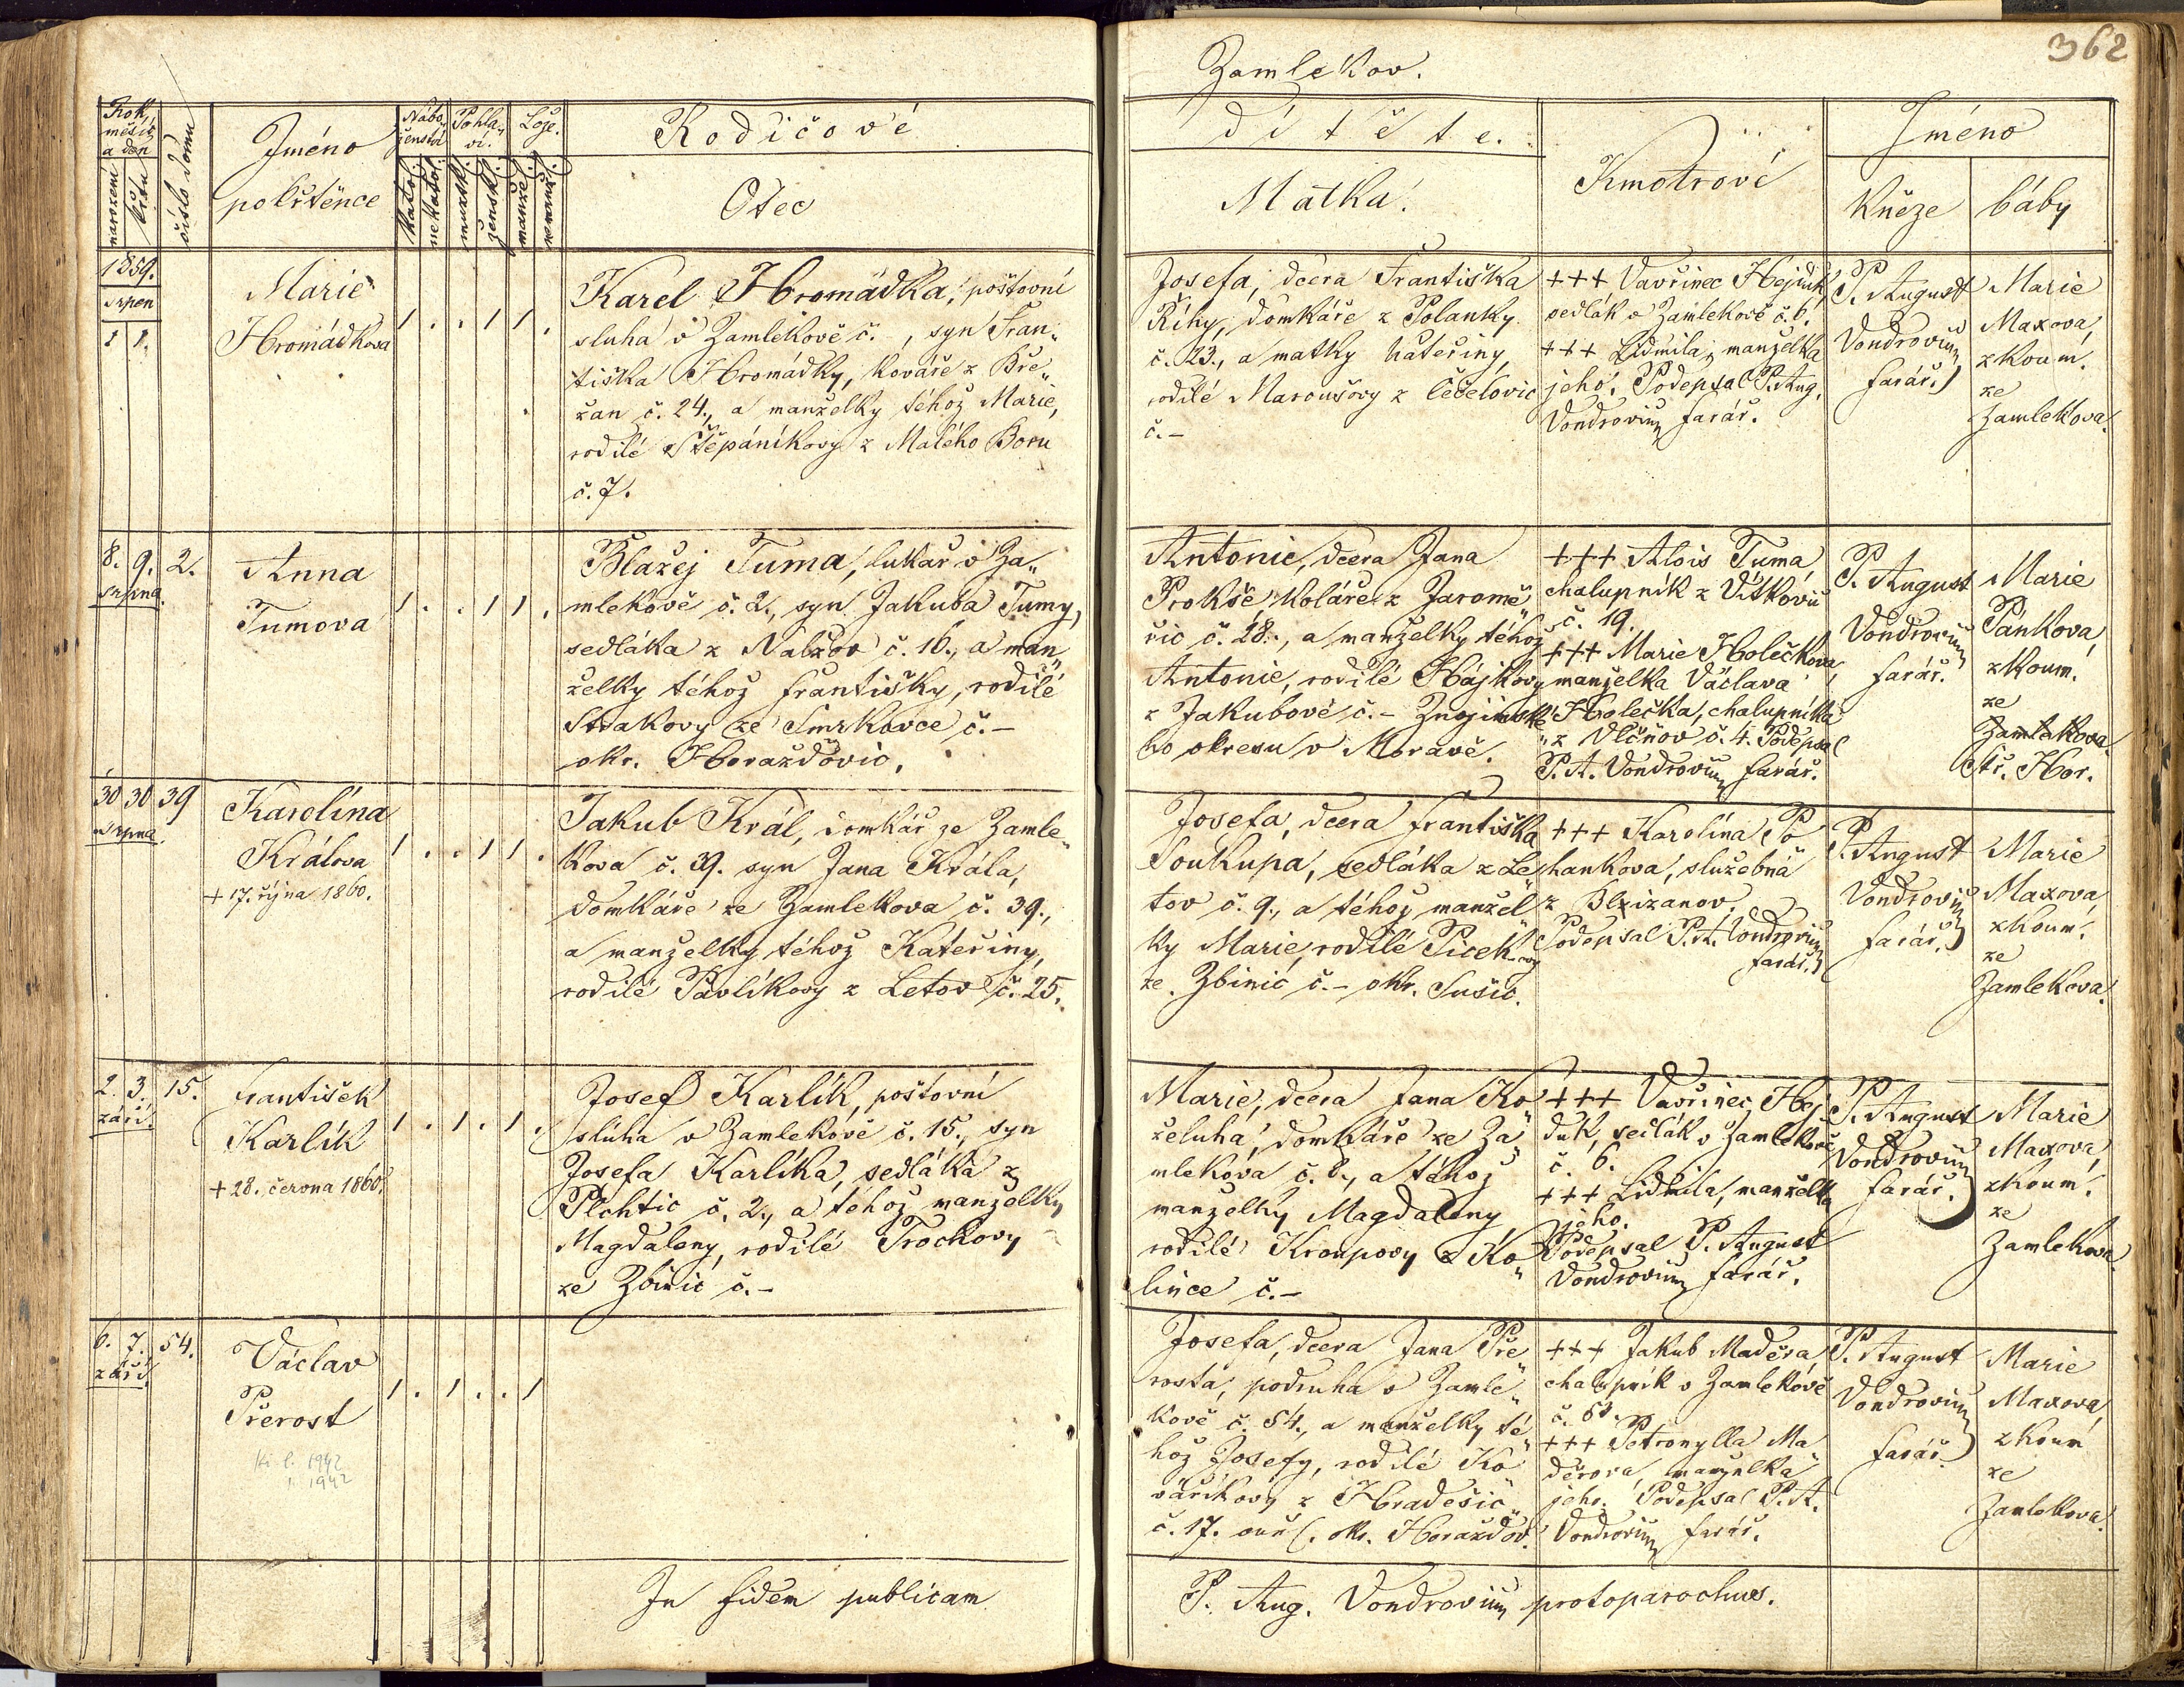 362
Zamlekov.
Rok,
měsíc
a den
narození
křtu
číslo domu
Jméno
pokřtěnce
Nábo„
ženství
katol.
nekatol.
Pohla„
ví.
mužsk.
žensk.
Lože.
manžel.
nemanž.
Rodičové
Otec
dítěte.
Matka.
Kmotrové
Jméno
kněze
báby
1859.
srpen
1 1.
Marie
Hromádkova
1 . . 1 1 .
Karel Hromádka, poštovní
sluha v Zamlekově č. , syn Fran„
tiška Hromádky, kováře z Bře„
žan č. 24., a manželky téhož Marie,
rodilé Štěpáníkovy z Malého Boru
č. 7.
Josefa, dcera Františka
Říhy, domkáře z Polanky
č. 23., a matky Kateřiny,
rodilé Maroušovy z Čečelovic
č. –
+++ Vavřinec Hejduk,
sedlák v Zamlekově č. 6.
+++ Lidmila, manželka
jeho. Podepsal P. Aug.
Vondrovium farář.
P. August
Vondrovium
farář.
Marie
Maxova,
zkoum.
ze
Zamlekova.
8. 9. 2.
srpna.
Anna
Tumova
1 . . 1 1 .
Blažej Tuma, lukař v Za„
mlekově č. 2., syn Jakuba Tumy,
sedláka z Nalžov č. 16., a man„
želky téhož Františky, rodilé
Strakovy ze Smrkovce č. –
okr. Horažďovic.
Antonie, dcera Jana
Prokše, koláře z Jaromě„
řic č. 28., a manželky téhož
Antonie, rodilé Hájkovy
z Jakubově č. – Znojemské„
ho okresu v Moravě.
+++ Alois Tuma
chalupník z Vítkovic
č. 19.
+++ Marie Holečkova,
manželka Václava
Holečka, chalupníka
z Vlčnov č. 4. Podepsal
P. A. Vondrovium farář.
P. August
Vondrovium
farář.
Marie
Pánkova
zkoum.
ze
Zamlekova.
Stř. Hor.
30 30 39
srpna.
Karolína
Králova
+ 17. října 1860.
1 . . 1 1 .
Jakub Král, domkář ze Zamle„
kova č. 39. syn Jana Krále,
domkáře ze Zamlekova č. 39.,
a manželky téhož Kateřiny,
rodilé Pavlíkovy z Letov č. 25.
Josefa, dcera Františka
Soukupa, sedláka z Le„
tov č. 9., a téhož manžel„
ky Marie, rodilé Picekovy
ze Zbinic č. – okr. Sušic.
+++ Karolína Po„
hankova, služebná
z Blzizanov.
Podepsal P. A. Vondrovium
farář.
P. August
Vondrovium
farář.
Marie
Maxova,
zkoum.
ze
Zamlekova.
2. 3. 15.
září.
František
Karlík
+ 28. června 1860.
1 . 1 . 1 .
Josef Karlík, poštovní
sluha v Zamlekově č. 15., syn
Josefa Karlíka, sedláka z
Plchtic č. 2., a téhož manželky
Magdaleny, rodilé Trochovy
ze Zbinic č. –
Marie, dcera Jana Ko„
želuha, domkáře ze Za„
mlekova č. 8., a téhož
manželky Magdaleny
rodilé Kroupovy z Ko„
lince č. –
+++ Vavřinec Hej„
duk, sedlák v Zamlekově
č. 6.
+++ Lidmila, manželka
jeho.
Podepsal P. August
Vondrovium farář.
P. August
Vondrovium
farář.
Marie
Maxova,
zkoum.
ze
Zamlekova
6. 7. 54.
září.
Václav
Přerost
1942
1942
1 . 1 . . 1
Josefa, dcera Jana Pře„
rosta, podruha v Zamle„
kově č. 54., a manželky té„
hož Josefy, rodilé Ko„
váříkovy z Hradešic
č. 17. okr. Horažďov.
+++ Jakub Maděra,
chalupník v Zamlekově
č. 51.
+++ Petronylla Ma„
děrova, manželka
jeho. Podepsal P. A.
Vondrovium farář.
P. August
Vondrovium
farář.
Marie
Maxova
zkoum
ze
Zamlekova.
In fidem publicam
P. Aug. Vondrovium protoparochus.